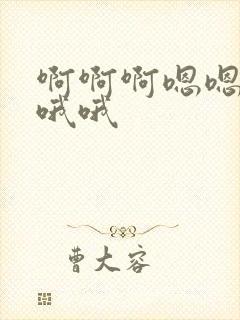 啊啊啊嗯嗯
哦哦
曹大容